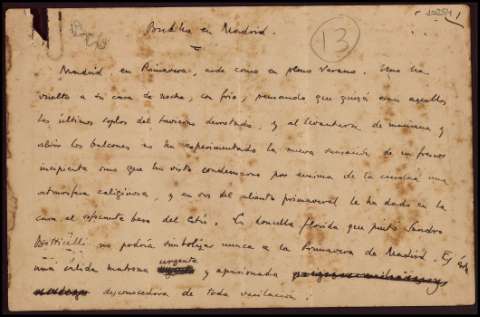 en Madrid.
13
Madrid, en Primavera, arde como en pleno Verano. Uno ha
vuelto a su casa de noche, con frío, pensando que quizá eran aquellos
los últimos soplos del invierno derrotado, y al levantarse de mañana y
abrir los balcones no ha experimentado la nueva sensación de un fresco
incipiente sino que ha visto condensarse por encima de la ciudad una
atmósfera caliginosa, y en vez del aliento primaveral le ha dado en la
cara el sofocante vaho del Estío. La doncella florida que pintó Sandro
Botticelli no podría simbolizar nunca a la Primavera de Madrid. Es ésta
urgente
una cálida matrona y apasionada
desconocedora de toda vacilación.